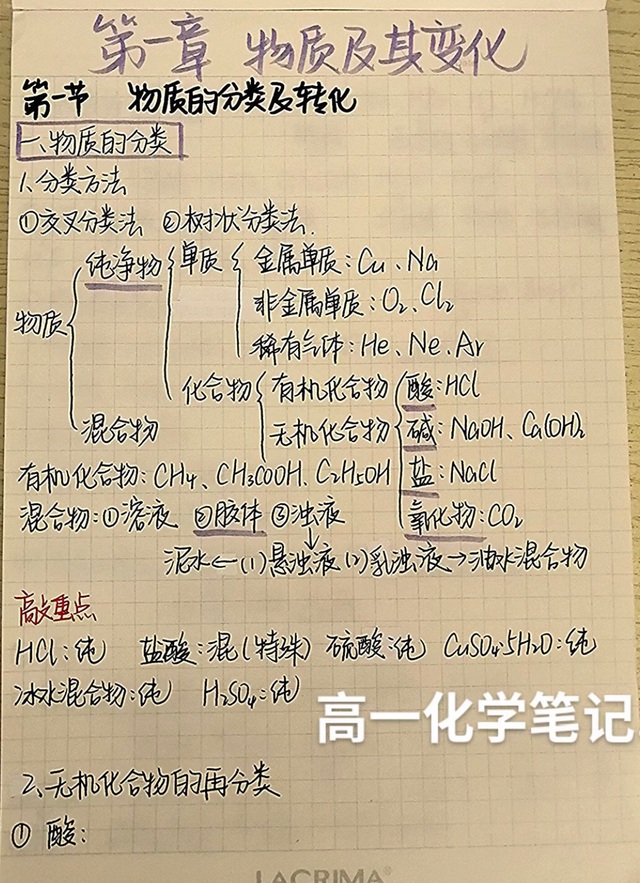 第一章 物质及其变化
第一节 物质的分类及转化
一、物质的分类
1、分类方法
①交叉分类法 ②树状分类法.
纯净物 单质 金属单质：Cu、Na
非金属单质：O₂、Cl₂
物质
稀有气体：He、Ne、Ar
化合物 有机化合物 酸：HCl
混合物 无机化合物 碱：NaOH、Ca(OH)₂
有机化合物：CH₄、CH₃COOH、C₂H₅OH 盐：NaCl
混合物：①溶液 ②胶体 ③浊液 氧化物：CO₂
泥水←(1)悬浊液(2)乳浊液→油水混合物
高考重点
HCl：纯 盐酸：混(特殊) 硫酸：纯 CuSO₄·5H₂O：纯
冰水混合物：纯 H₂SO₄：纯
高一化学笔记
2、无机化合物的再分类
① 酸：
LACRIMA®